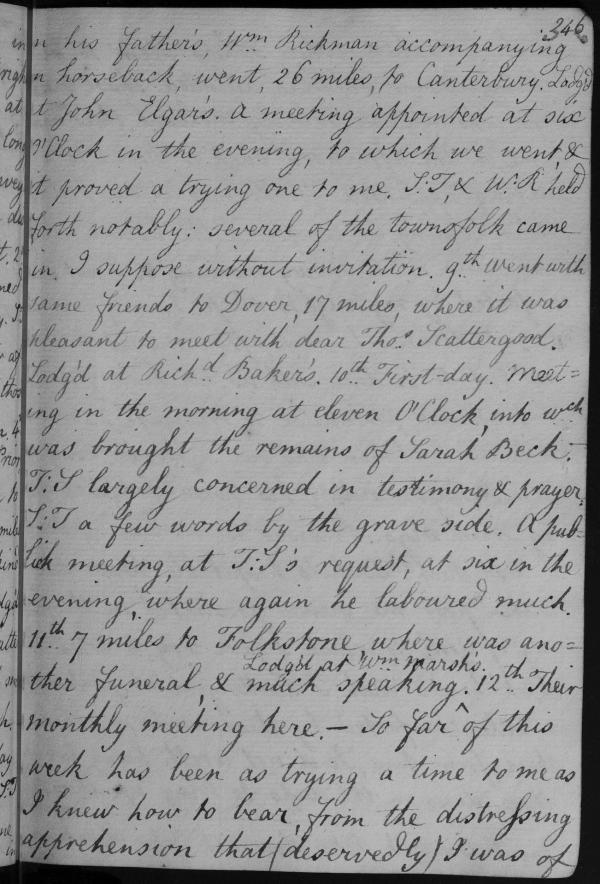 346
n his father's, Wm Rickman accompanying
n horseback, went, 26 miles, to Canterbury. Lodg'd
t John Elgar's. A meeting appointed at six
O'Clock in the evening, to which we went, &
it proved a trying one to me. S:T, & W:R held
forth notably: several of the townsfolk came
in, I suppose without invitation. 9th went with
same friends to Dover, 17 miles, where it was
pleasant to meet with dear Thos Scattergood.
Lodg'd at Richd Baker's. 10th First-day. Meet=
ing in the morning at eleven O'Clock, into wch
was brought the remains of Sarah Beck.
T:S largely concerned in testimony & prayer,
S:T a few words by the grave side. A pub=
lick meeting, at T:S's request, at six in the
evening, where again he laboured much.
11th 7 miles to Folkstone, where was ano=
Lodg'd at Wm Marshs.
ther funeral, & much speaking. 12th Their
monthly meeting here. — So far ^ of this
week has been as trying a time to me as
I knew how to bear, from the distressing
apprehension that (deservedly) I was of